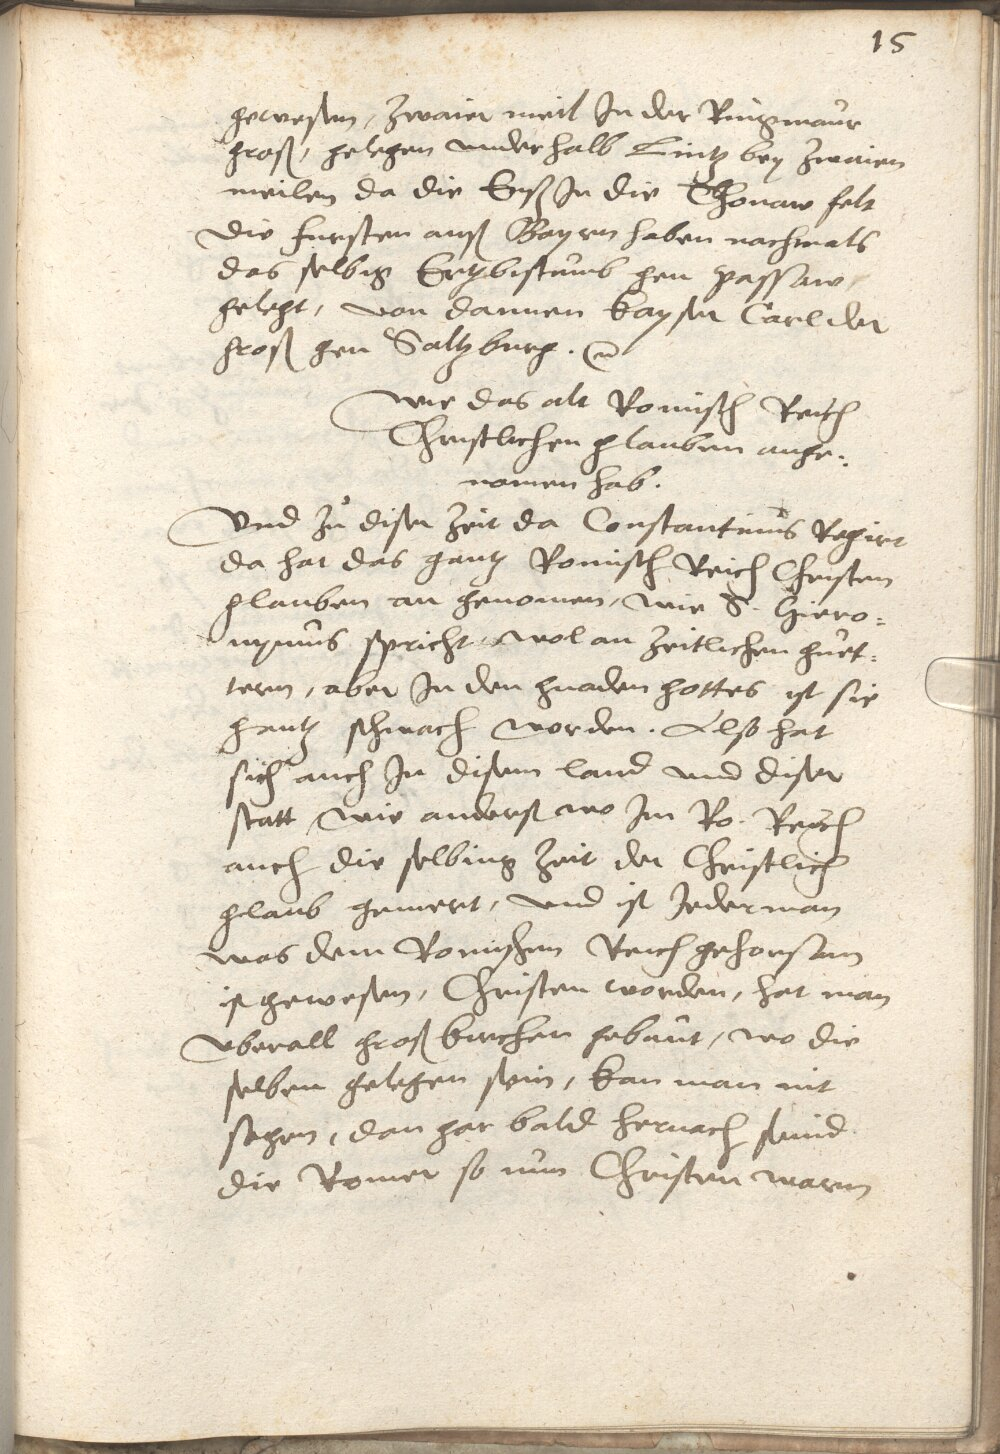 15
gewesen, zwaier meil In der Ringmaur
groß, gelegen underhalb Lintz bey zwaien
meilen da die Ens In die Thonaw felt
Die fursten auß Bayrn haben nachmals
das selbig Ertzbistumb gen passaw
gelegt, von dannen kayser Carl der
groß gen Saltzburg.
Wie das alt Romisch Reich
Christlichen glauben ange-
nomen hab.
Und zů diser zeit da Constantinus Regirt
da hat das gantz Romisch Reich Christen
glauben an genomen, wie S. Hiero-
nymus spricht, wol an zeitlichen guet-
tern, aber In den gnaden gottes ist sie
gantz schwach worden. Also hat
sich auch In disem land und diser
statt, wie anderß wo Im Ro. Reich
auch die selbing zeit der Christlich
glaub gemert, und ist Jederman
was dem Romischen Reich gehorsam
ist gewesen, Christen worden, hat man
uberall groß kirchen gebaut, wo die
selben gelegen sein, kan man nit
sagen, dan gar bald hernach seind
die Romer so nun Christen waren